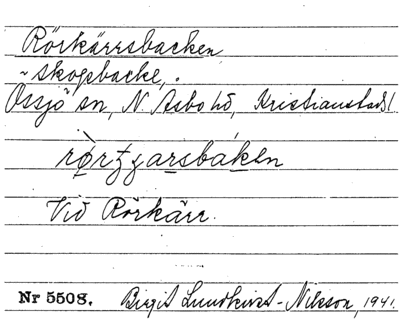 Rörkärrsbacken
~ skogsbacke,
Össjö sn, N Åsbo hd, Kristianstads l.
Vid Rörkärr.
Nr 5508. Birgit Lundkvist-Nilsson, 1941.